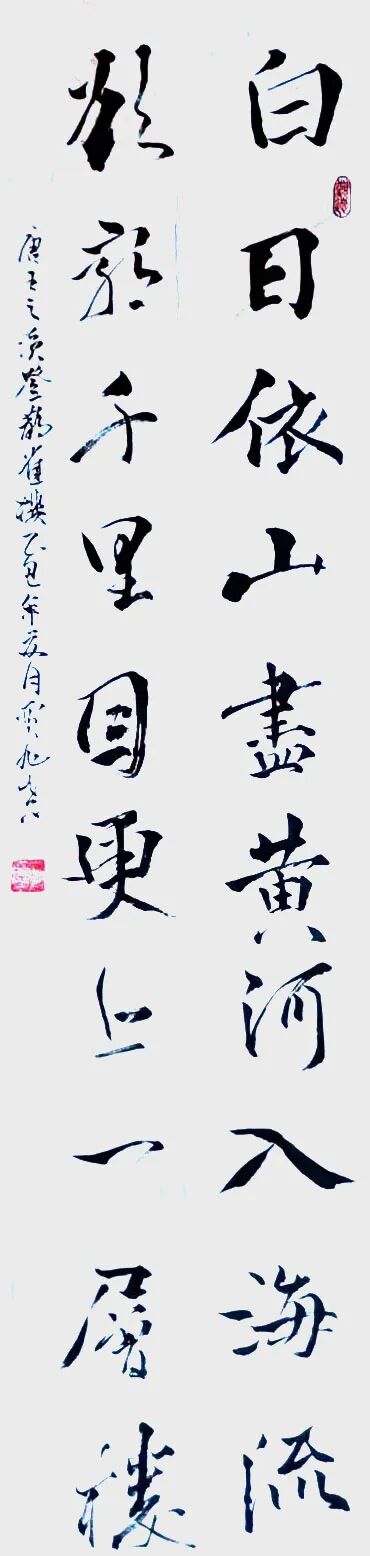 白日依山盡黄河入海流
欲窮千里目更上一層樓
唐王之渙登鸛雀樓乙巳年夏月